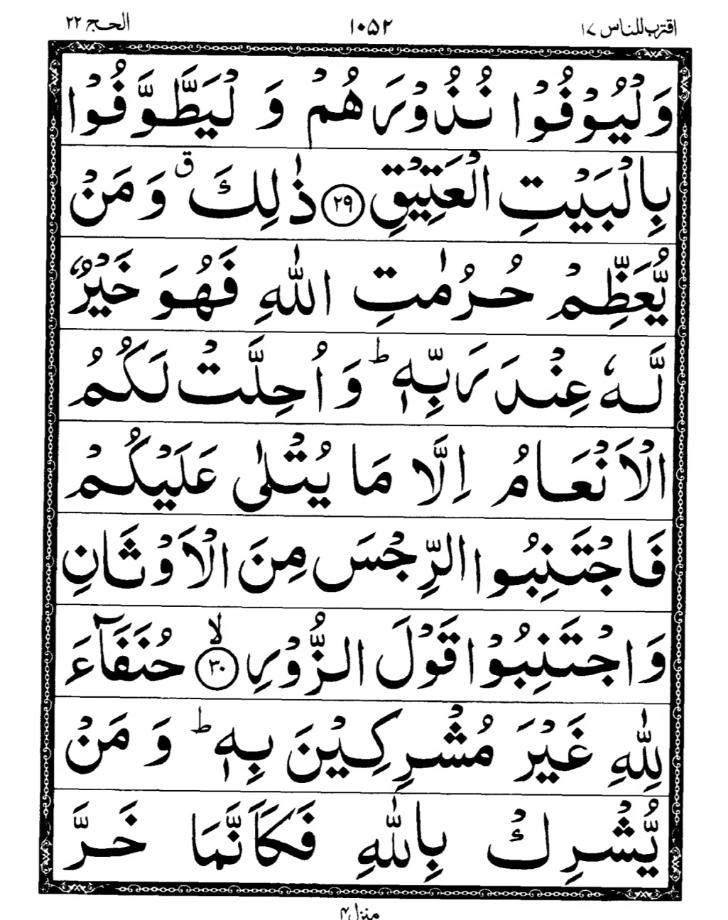 اقترب للناس ١٧ ١٠٥٢ الحج ٢٢
وَلۡيُوۡفُوۡا نُذُوۡرَهُمۡ وَ لۡيَطَّوَّفُوۡا
بِالۡبَيۡتِ الۡعَتِيۡقِ ﴿۲۹﴾ ذٰلِكَ ۙ وَ مَنۡ
يُّعَظِّمۡ حُرُمٰتِ اللّٰهِ فَهُوَ خَيۡرٌ
لَّهٗ عِنۡدَ رَبِّهٖ ؕ وَ اُحِلَّتۡ لَكُمُ
الۡاَنۡعَامُ اِلَّا مَا يُتۡلٰى عَلَيۡكُمۡ
فَاجۡتَنِبُوا الرِّجۡسَ مِنَ الۡاَوۡثَانِ
وَاجۡتَنِبُوۡا قَوۡلَ الزُّوۡرِ ۙ﴿۳۰﴾ حُنَفَآءَ
لِلّٰهِ غَيۡرَ مُشۡرِكِيۡنَ بِهٖ ؕ وَ مَنۡ
يُّشۡرِكۡ بِاللّٰهِ فَكَاَنَّمَا خَرَّ
منزل ۴